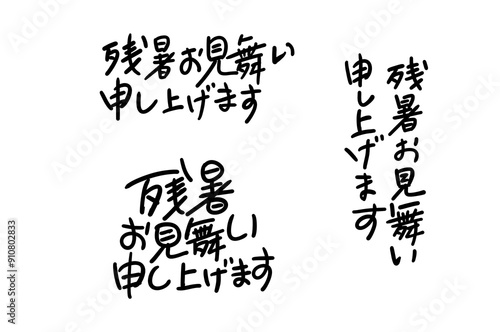 残暑お見舞い
申し上げます
残暑お見舞い
申し上げます
残暑
お見舞い
申し上げます
Adobe Stock | #910802833